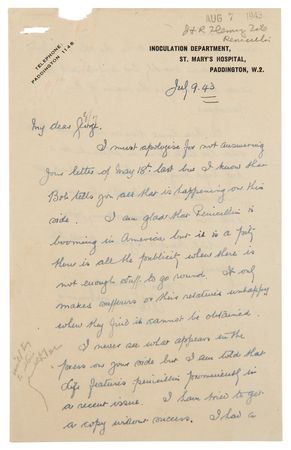 AUG 7 1943
Penicillin
TELEPHONE
PADDINGTON 1148
INOCULATION DEPARTMENT,
ST. MARY'S HOSPITAL,
PADDINGTON, W.2.
July 9. 43
My dear
I must apologise for not answering
your letter of May 18th last but I know that
Bob tells you all that is happening on this
side. I am glad that Penicillin is
booming in America but it is a pity
there is all the publicity when there is
not enough stuff to go round. It only
makes sufferers or their relatives unhappy
when they find it cannot be obtained.
I never see what appears in the
press on your side but I am told that
Life features penicillin prominently in
a recent issue. I have tried to get
a copy without success. I had a